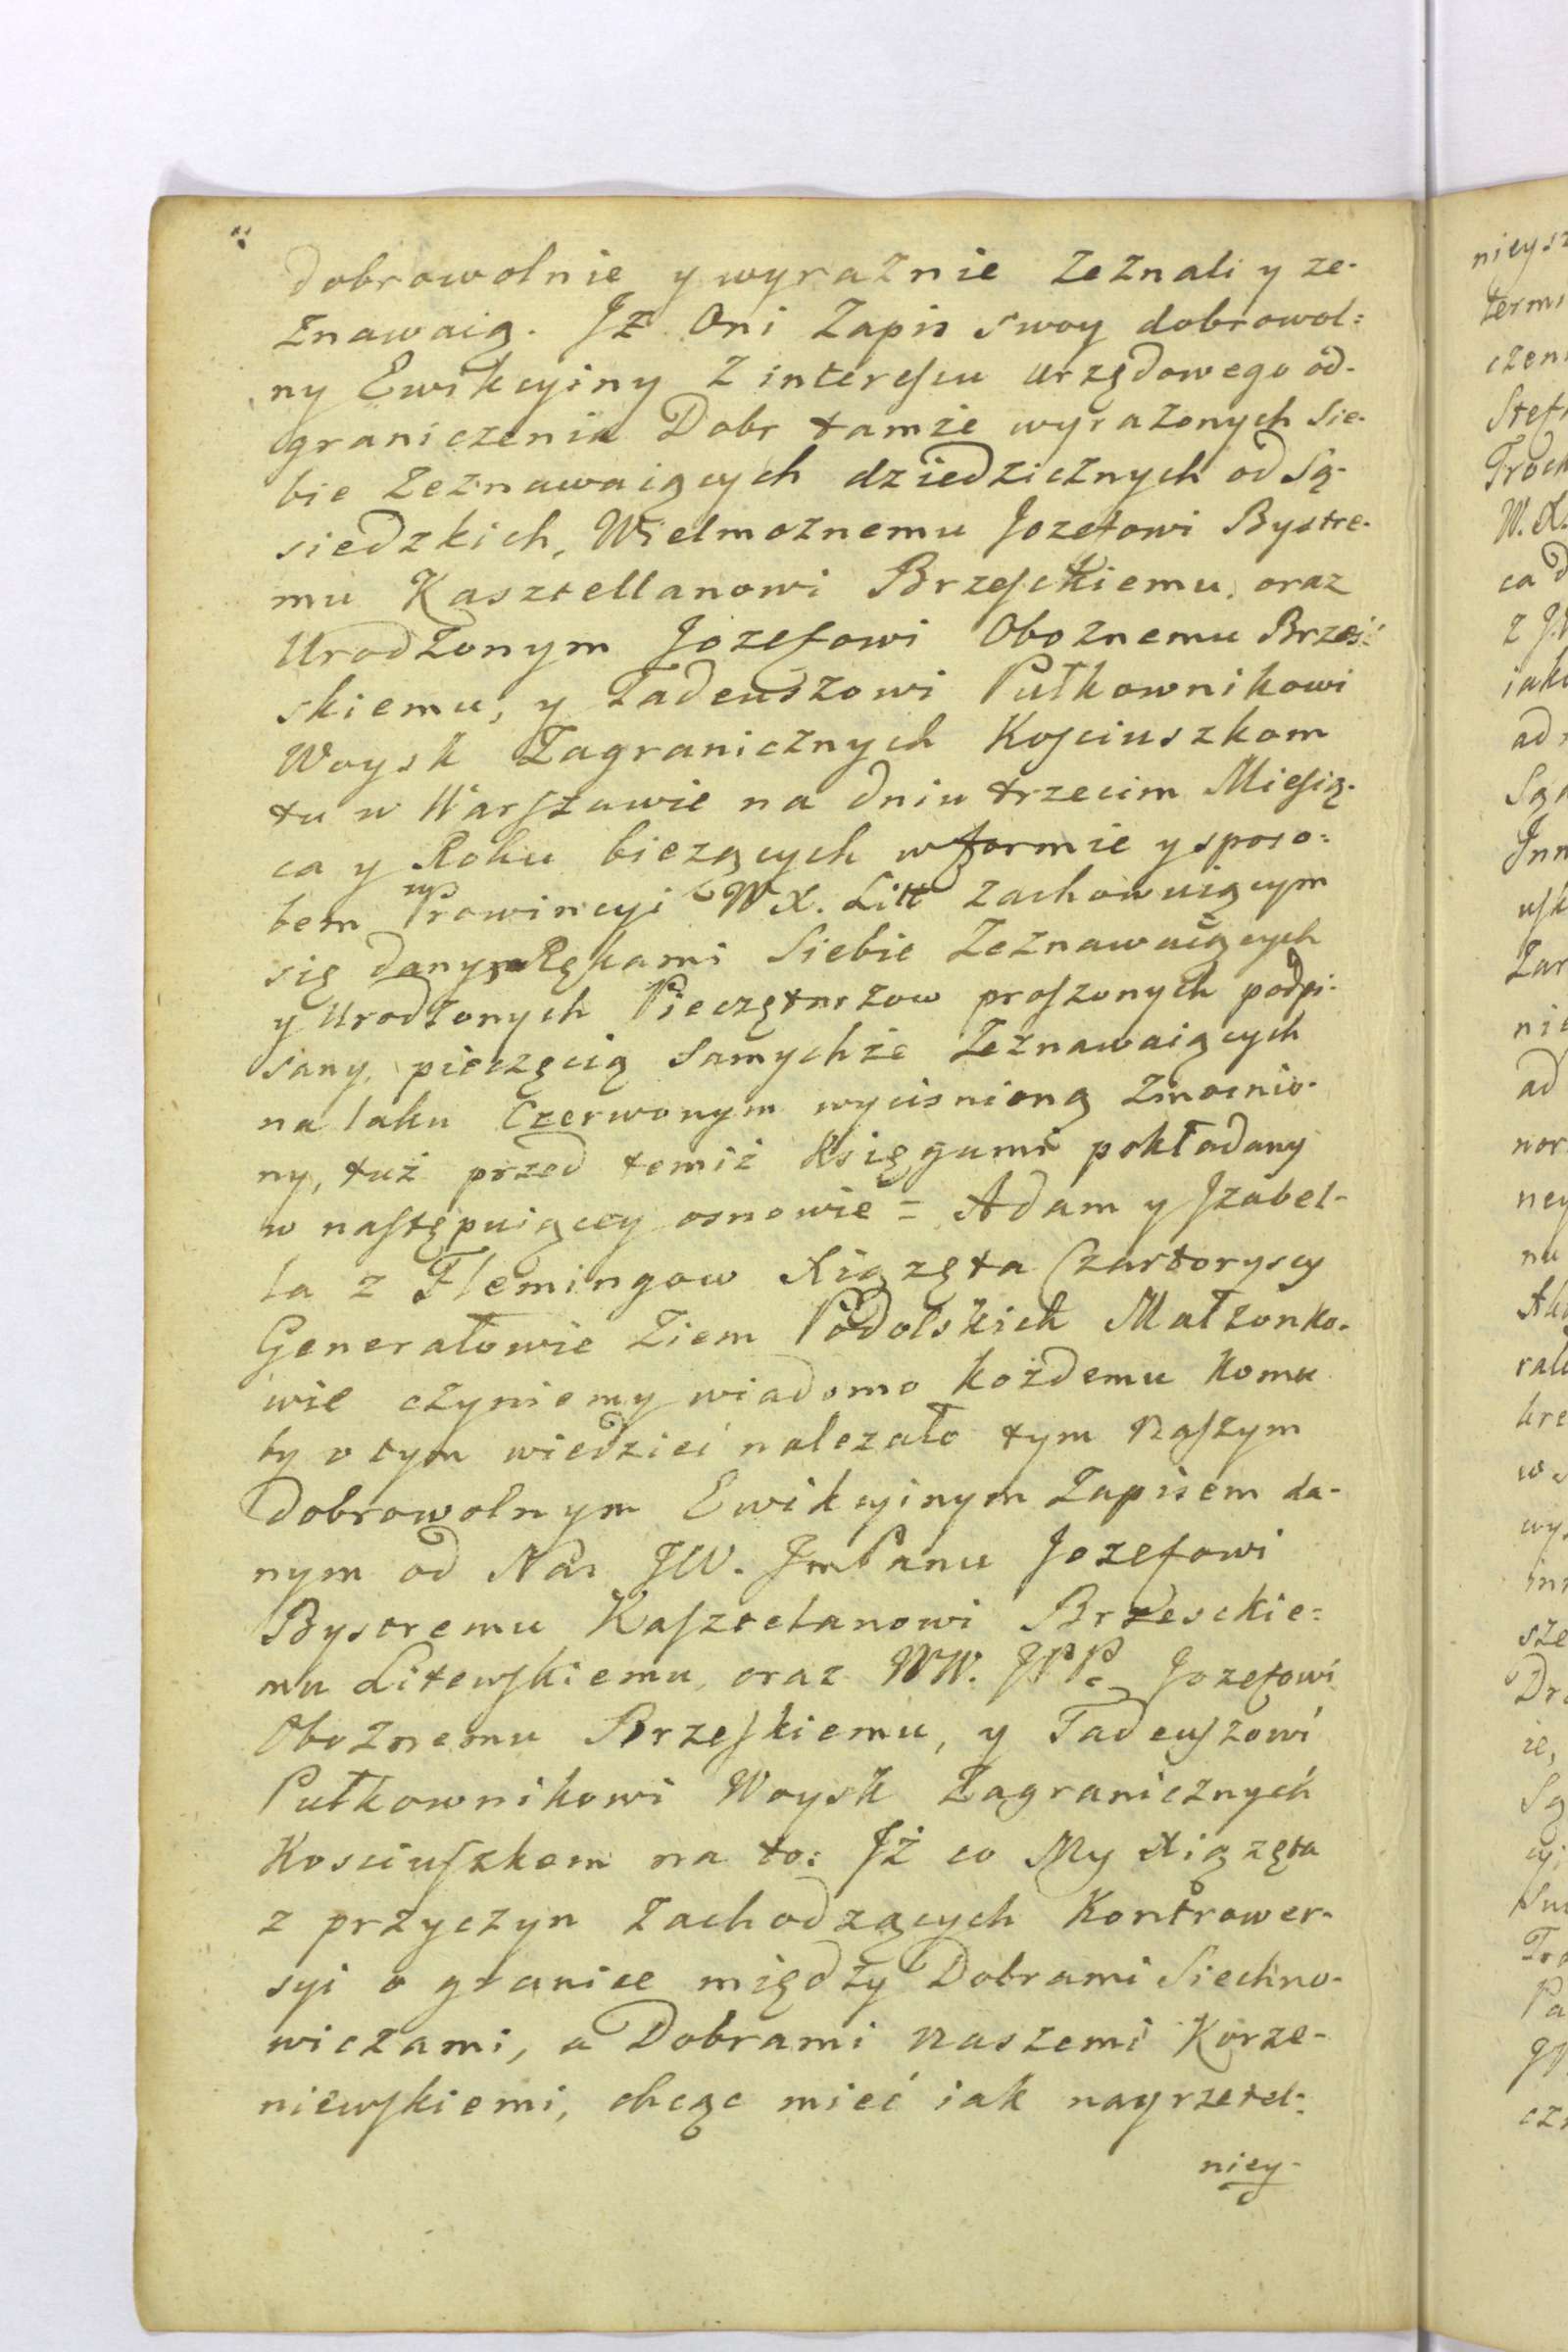 dobrowolnie y wyraznie zeznali y ze-
znawaią. Jż Oni Zapis swoy dobrowol:
ny Ewikcyiny z interessu urzędowego od-
graniczenia Dobr tamże wyrazonych Sie-
bie Zeznawaiących dziedzicznych od Są-
siedzkich, Wielmoznemu Jozefowi Bystre-
mu Kasztellanowi Brzesckiemu, oraz
Urodzonym Jozefowi Oboznemu Brzes:
skiemu, y Tadeuszowi Pułkownikowi
Woysk Zagranicznych Kosciuszkom
tu w Warszawie na dniu trzecim Miesią-
ca y Roku biezących w formie y sposo:
bem w Prowincyi WX. Litt zachowuiącym
się danym Rękami Siebie Zeznawaiących
y Urodzonych Pieczętarzow proszonych podpi-
sany, pieczęcią Samychże Zeznawaiących
na laku Czerwonym wycisnioną Zmocnio-
ny, tuż przed temiż Księgami pokładany
w następuiącey osnowie = Adam y Jzabel-
la z Flemingow Xiązęta Czartoryscy
Generałowie Ziem Podolskich Małzonko-
wie czyniemy wiadomo każdemu komu
by o tym wiedzieć nalezało tym naszym
dobrowolnym Ewikcyinym Zapisem da-
nym od Nas JW. JmPanu Jozefowi
Bystremu Kasztelanowi Brzesckie:
mu Litewskiemu, oraz WW. JPP. Jozefowi
Oboznemu Brzeskiemu, y Tadeuszowi
Pułkownikowi Woysk Zagranicznych
Kosciuszkom na to: Jż co My Xiązęta
z przyczyn Zachodzących Kontrower-
syi o granice między Dobrami Siechno-
wiczami, a Dobrami naszemi Korze-
niewskiemi, chcąc mieć iak nayrzetel:
niey-